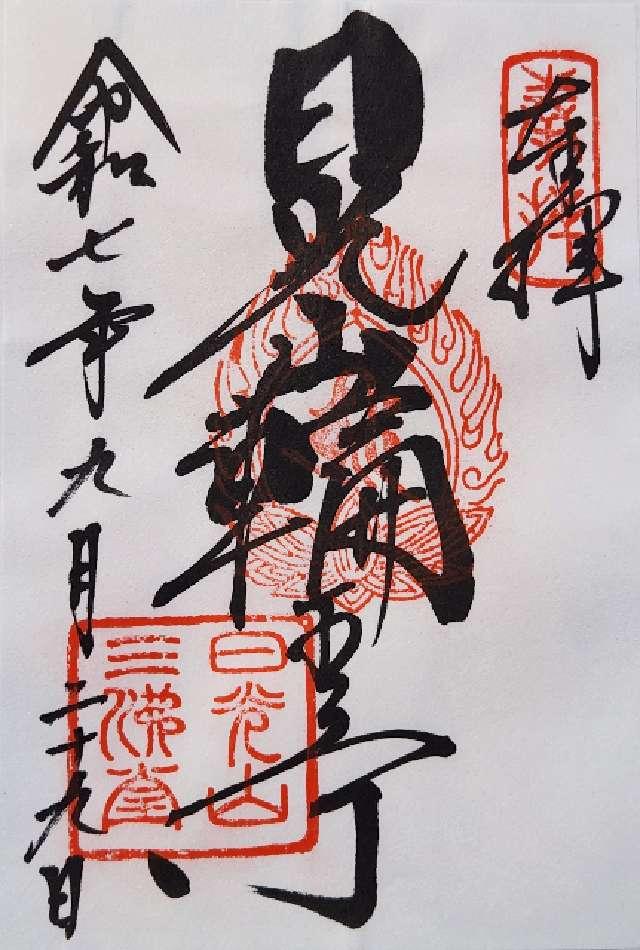 奉拝
日光山輪王寺
日光山
三佛堂
令和七年九月二十九日